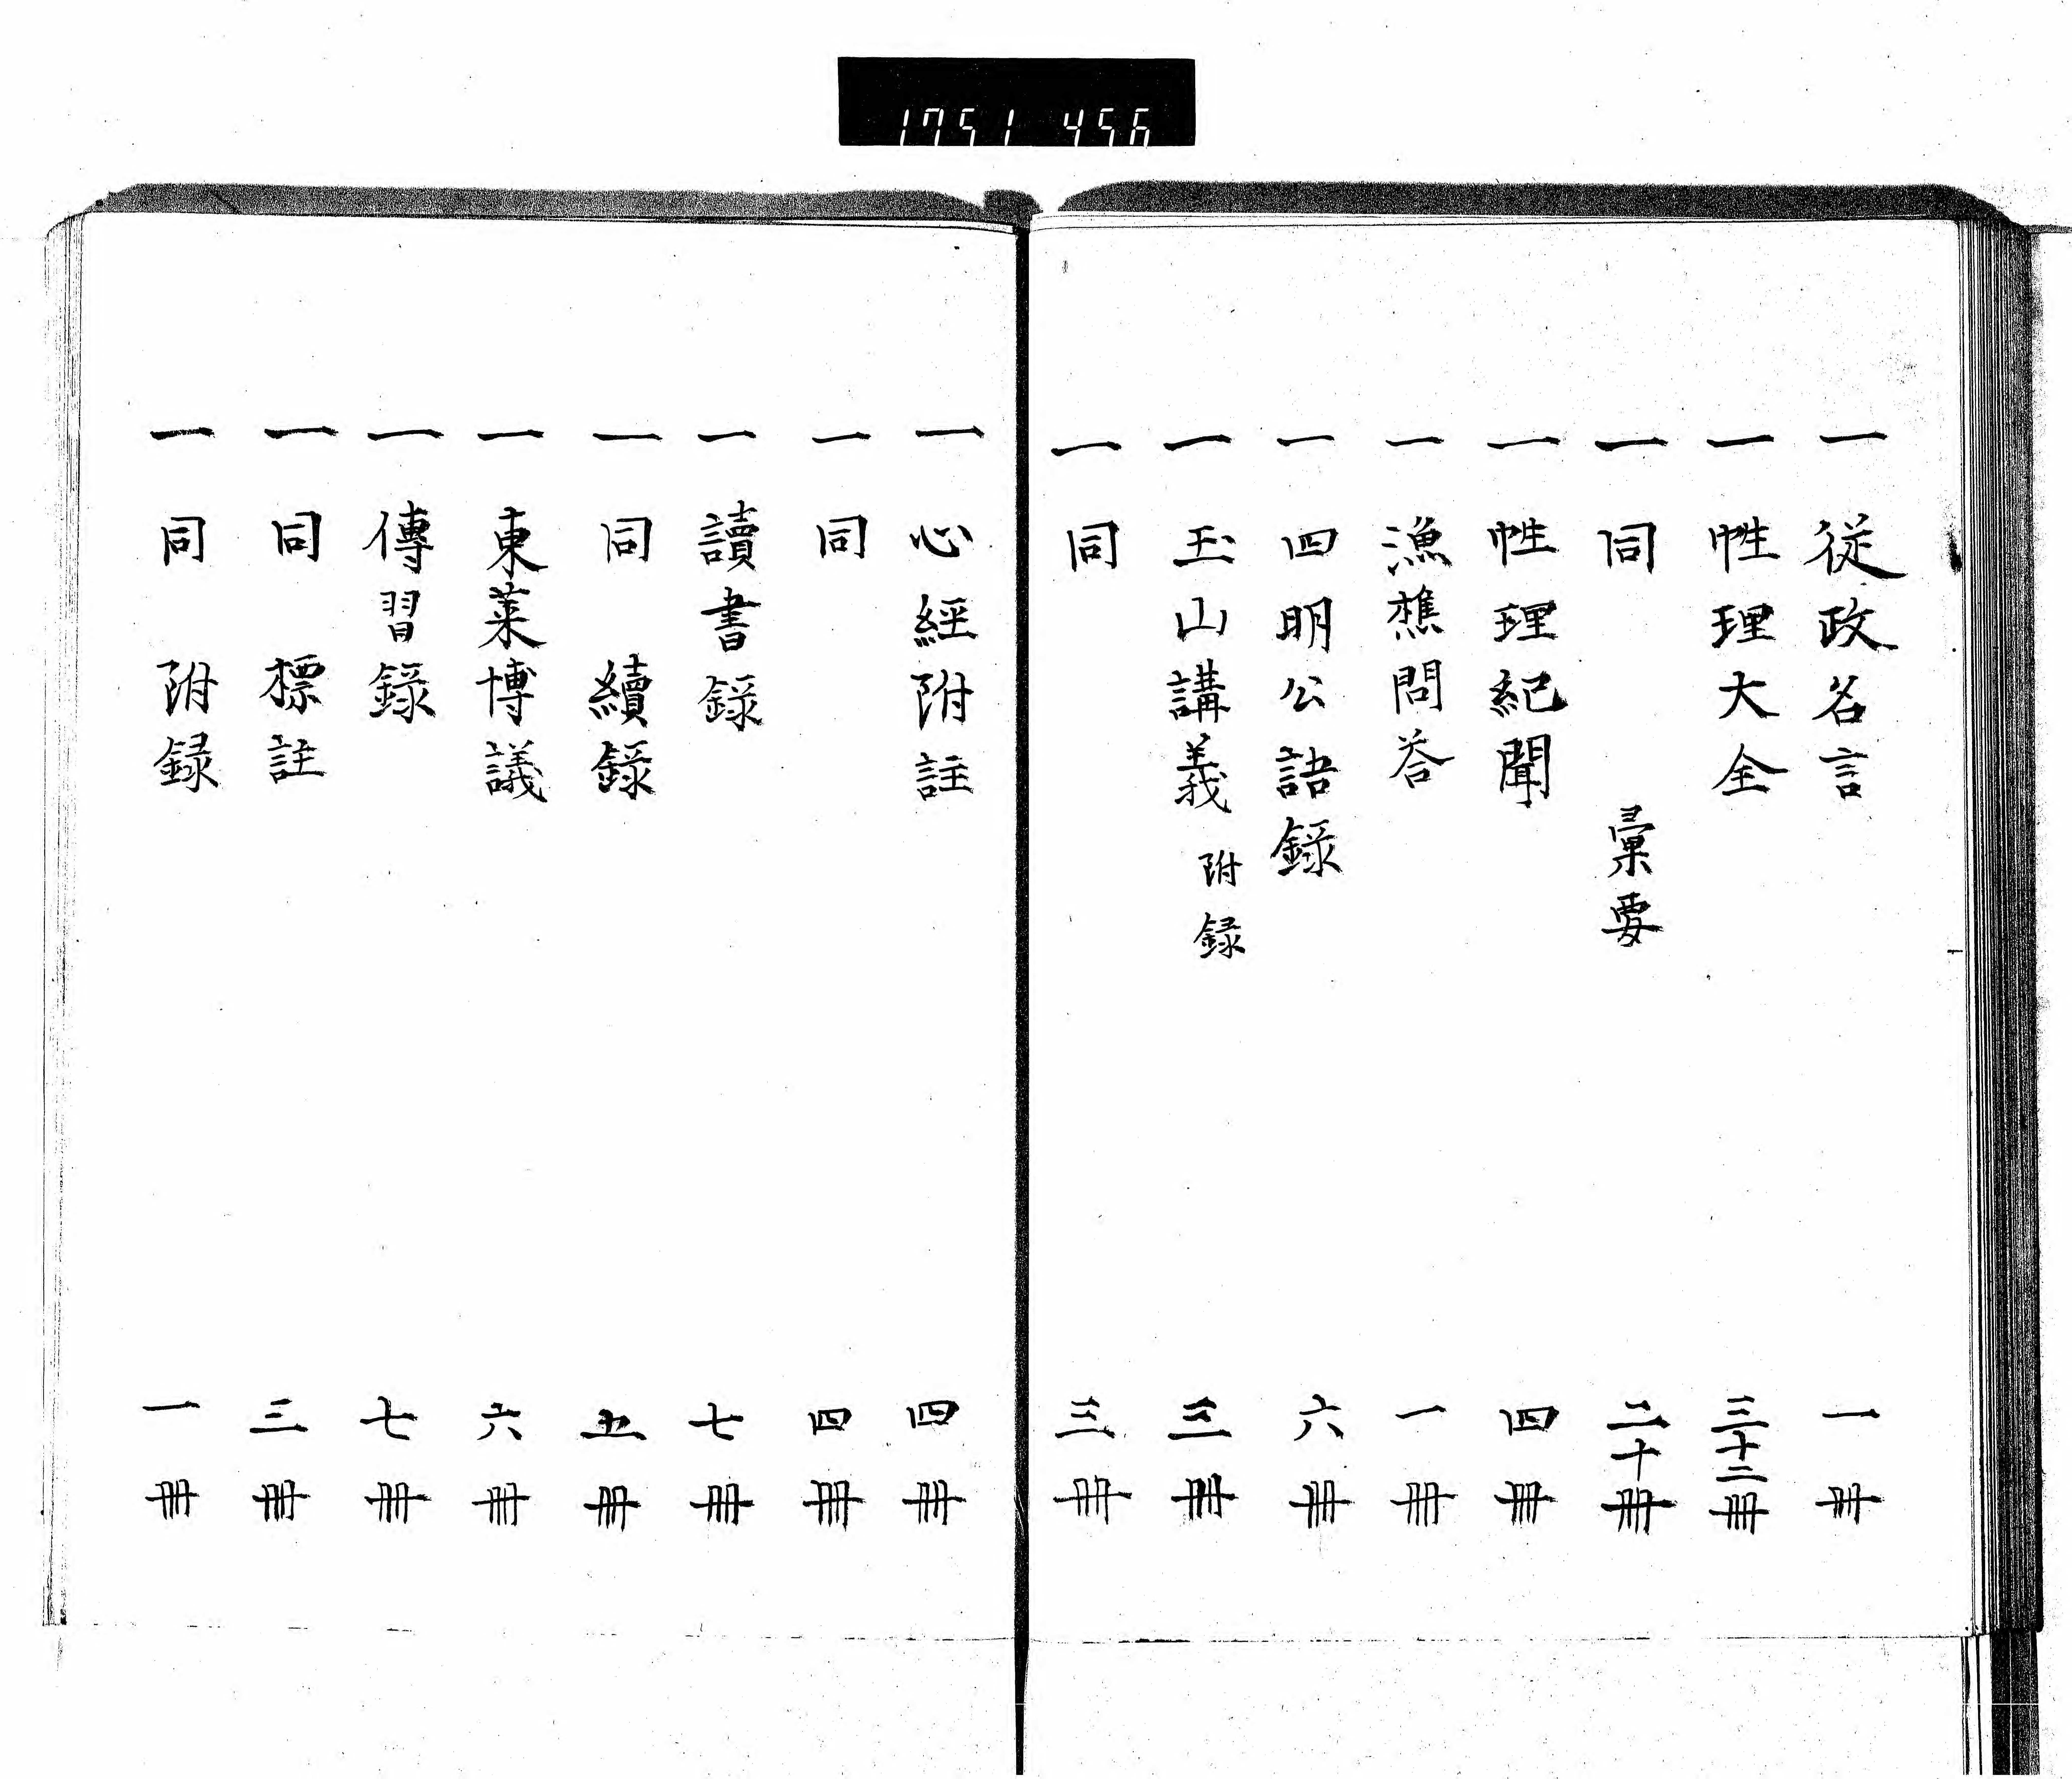 1751 456
一 従政名言 一冊
一 性理大全 三十二冊
一 同 彙要 二十冊
一 性理紀聞 四冊
一 漁樵問荅 一冊
一 四明公語録 六冊
一 玉山講義 附録 三冊
一 同 三冊
一 心經附註 四冊
一 同 四冊
一 讀書録 七冊
一 同 續録 五冊
一 東莱博議 六冊
一 傳習録 七冊
一 同 標註 三冊
一 同 附録 一冊